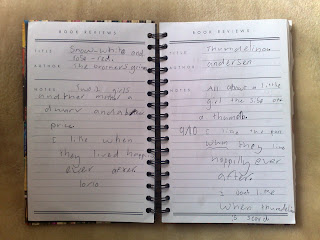 BOOK REVIEWS
TITLE Snow-white and
rose-red.
AUTHOR The brothers grim
NOTES two girls
and their mother a
and a
I like when
they lived happ
ever after
BOOK REVIEWS
TITLE Thumdelinou
AUTHOR andersen
NOTES All about a little
girl the size of
a thumb
9/10 I like the part
when they live
happily ever
after.
I dont like
when thumdeli
is